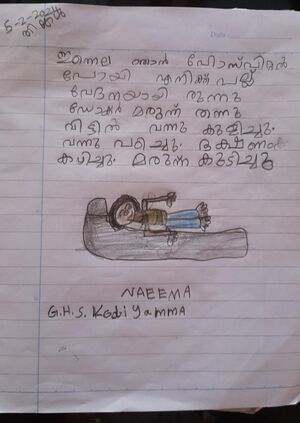 5-2-2024
തിങ്കൾ
Date:
ഇന്നലെ ഞാൻ ഹോസ്പിറ്റൽ
പോയി എനിക്ക് പല്ല്
വേദനയായി രുന്നു
ഡോക്ടർ മരുന്ന് തന്നു
വീട്ടിൽ വന്നു കുളിച്ചു.
വന്നു പഠിച്ചു. ഭക്ഷണം
കഴിച്ചു. മരുന്ന് കുടിച്ചു
NAEEMA
G.H.S. Kodiyamma